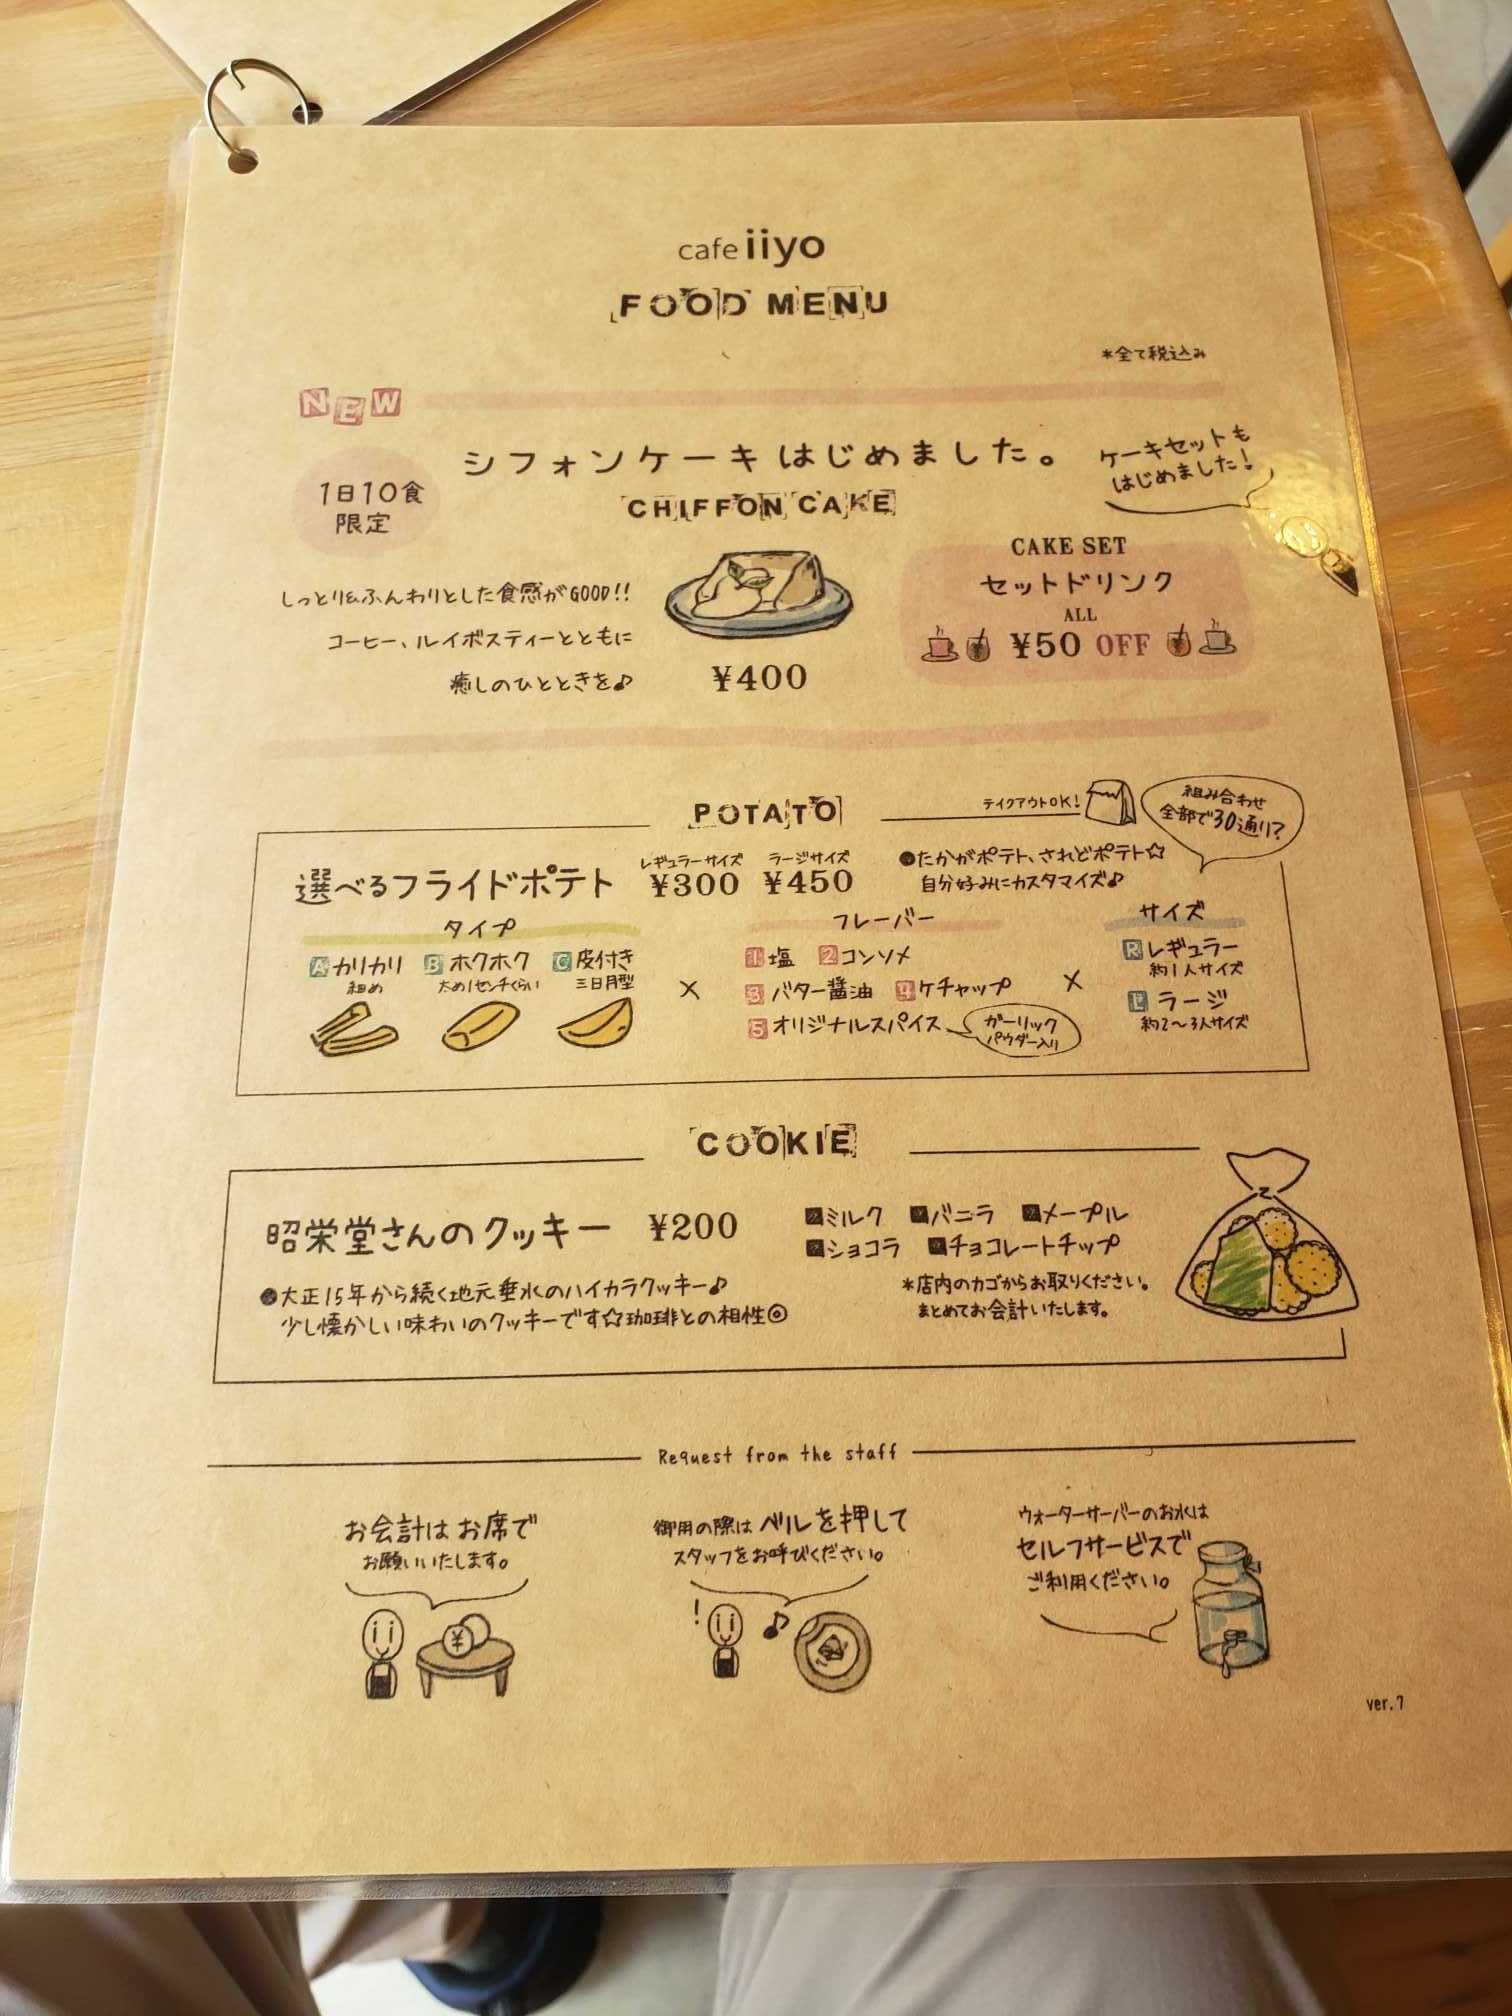 cafe iiyo
FOOD MENU
*全て税込み
NEW
シフォンケーキはじめました。
ケーキセットも
はじめました!
1日10食
限定
CHIFFON CAKE
しっとり&ふんわりとした食感がGOOD!!
コーヒー、ルイボスティーとともに
癒しのひとときを♪
¥400
CAKE SET
セットドリンク
ALL
¥50 OFF
POTATO
テイクアウトOK!
組み合わせ
全部で30通り?
選べるフライドポテト
レギュラーサイズ ラージサイズ
¥300 ¥450
●たかがポテト、されどポテト☆
自分好みにカスタマイズ♪
タイプ
A カリカリ B ホクホク C 皮付き
細め 太め1センチくらい 三日月型
×
フレーバー
1 塩 2 コンソメ
3 バター醤油 4 ケチャップ
5 オリジナルスパイス
ガーリック
パウダー入り
×
サイズ
R レギュラー
約1人サイズ
L ラージ
約2~3人サイズ
COOKIE
昭栄堂さんのクッキー ¥200
■ミルク ■バニラ ■メープル
■ショコラ ■チョコレートチップ
●大正15年から続く地元垂水のハイカラクッキー♪
少し懐かしい味わいのクッキーです☆珈琲との相性◎
*店内のカゴからお取りください。
まとめてお会計いたします。
Request from the staff
お会計はお席で
お願いいたします。
¥
御用の際はベルを押して
スタッフをお呼びください。
!
♪
ウォーターサーバーのお水は
セルフサービスで
ご利用ください。
ver.7